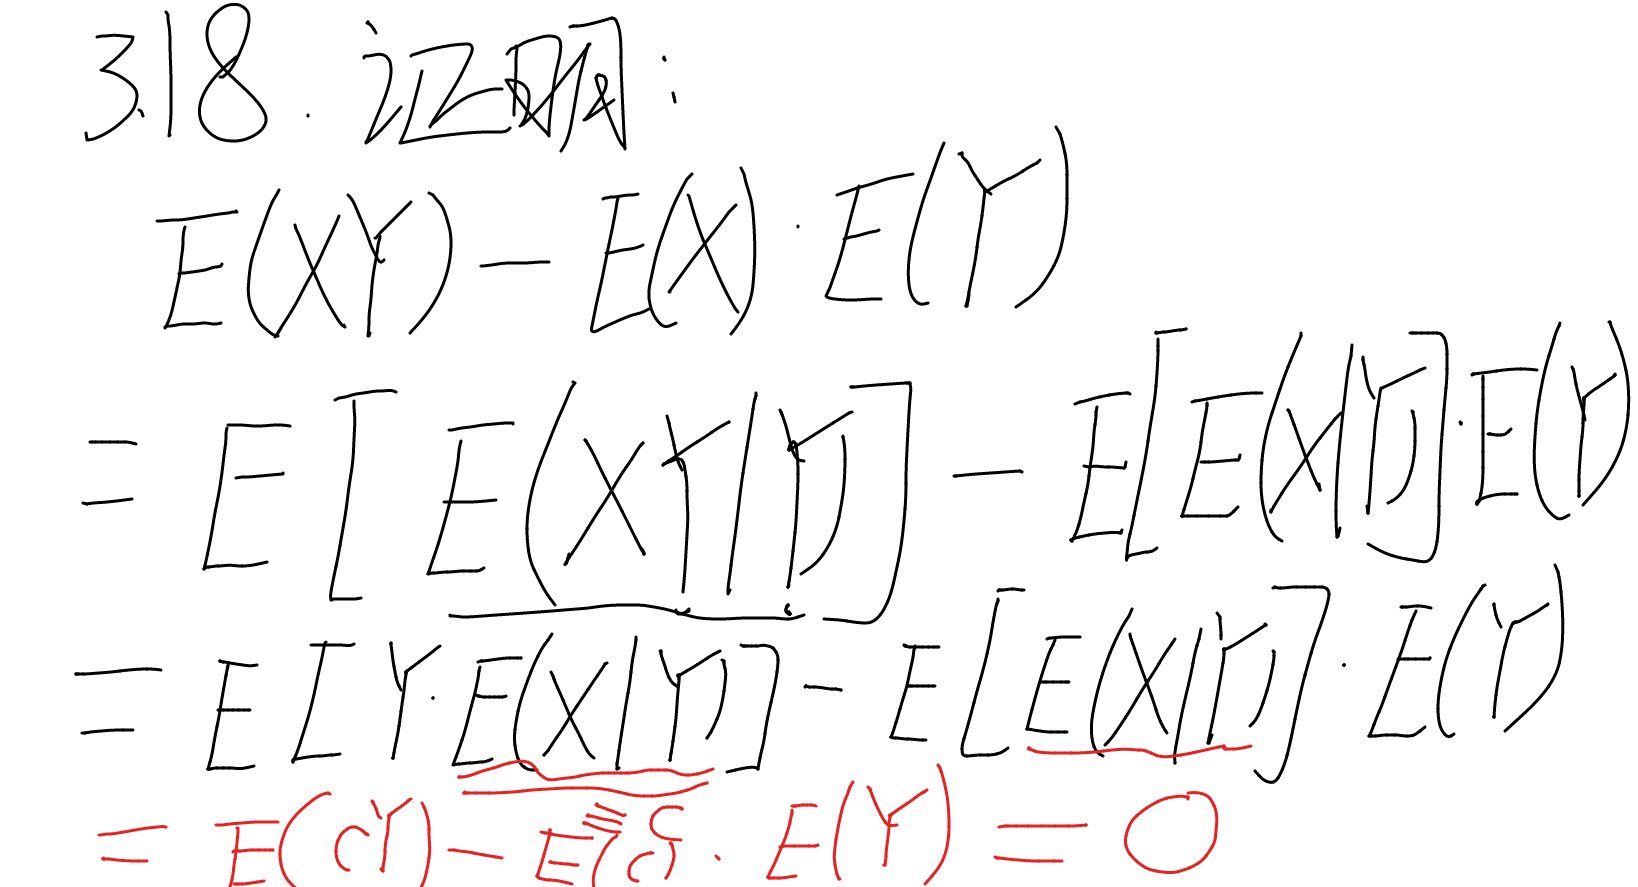 3.18. 证明:
E(XY) - E(X)·E(Y)
= E[E(XY|Y)] - E[E(X|Y)]·E(Y)
= E[Y·E(X|Y)] - E[E(X|Y)]·E(Y)
≡ C
= E(CY) - E(C)·E(Y) = 0